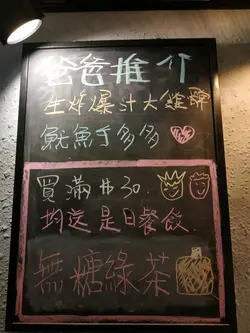 爸爸推介
生炸爆汁大雞髀
魷魚丁多多
買滿$30.
均送是日餐飲.
無糖綠茶